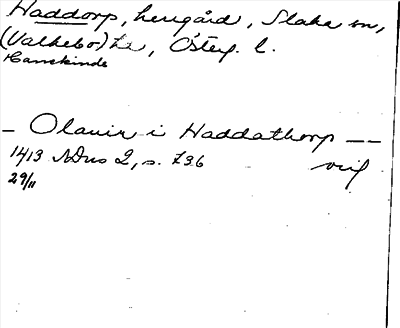 Haddorp, herrgård, Slaka sn,
(Valkebo) hd, Österg. l.
Hanekinds
- Olauir i Haddathorp --
1413 SDns 2, s. 736 orig
29/11